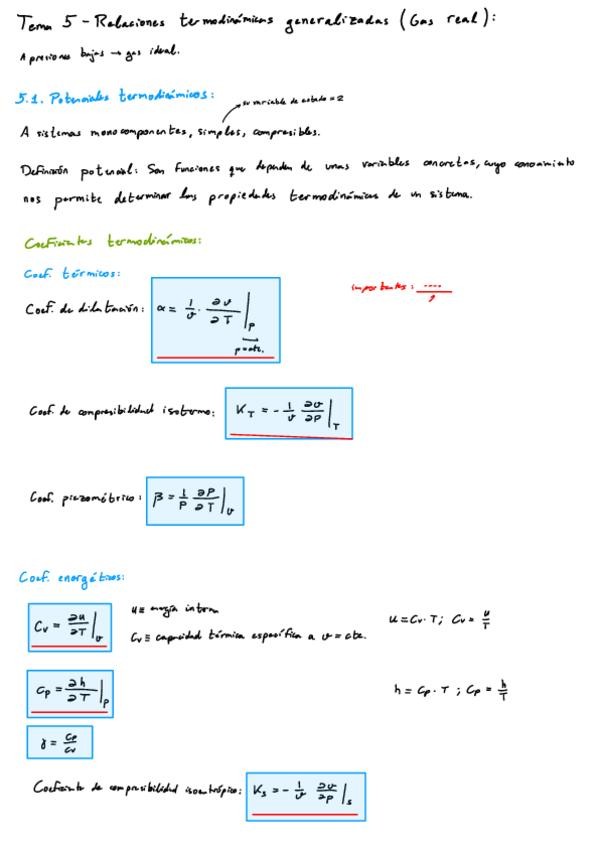 Tema 5 - Relaciones termodinámicas generalizadas (Gas real):
A presiones bajas → gas ideal.
5.1. Potenciales termodinámicos:
su variable de estado = 2
A sistemas monocomponentes, simples, compresibles.
Definición potencial: Son funciones que dependen de unas variables concretas, cuyo conocimiento
nos permite determinar las propiedades termodinámicas de un sistema.
Coeficientes termodinámicos:
Coef. térmicos:
importantes: ....
Coef. de dilatación: α = 1/v · ∂v/∂T |p
p=cte.
Coef. de compresibilidad isotermo: K_T = - 1/v ∂v/∂p |T
Coef. piezométrico: β = 1/P ∂P/∂T |v
Coef. energéticos:
Cv = ∂u/∂T |v
u ≡ energía interna
Cv ≡ capacidad térmica específica a v = cte.
u = Cv · T ; Cv = u/T
Cp = ∂h/∂T |p
h = Cp · T ; Cp = h/T
γ = Cp/Cv
Coeficiente de compresibilidad isoentrópico: K_s = - 1/v ∂v/∂p |s